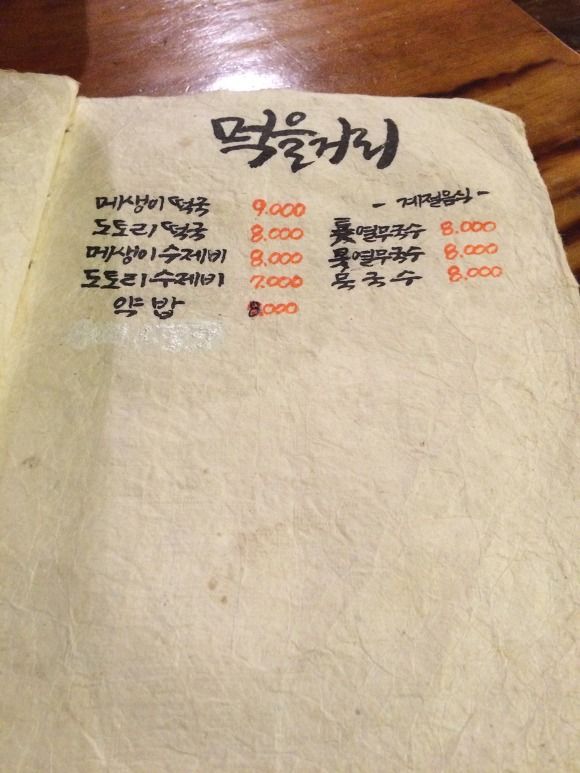 먹을거리
메생이 떡국 9.000
도토리 떡국 8.000
메생이수제비 8.000
도토리수제비 7.000
약밥 8,000
- 계절음식 -
열무국수 8.000
열무국수 8.000
묵국수 8.000